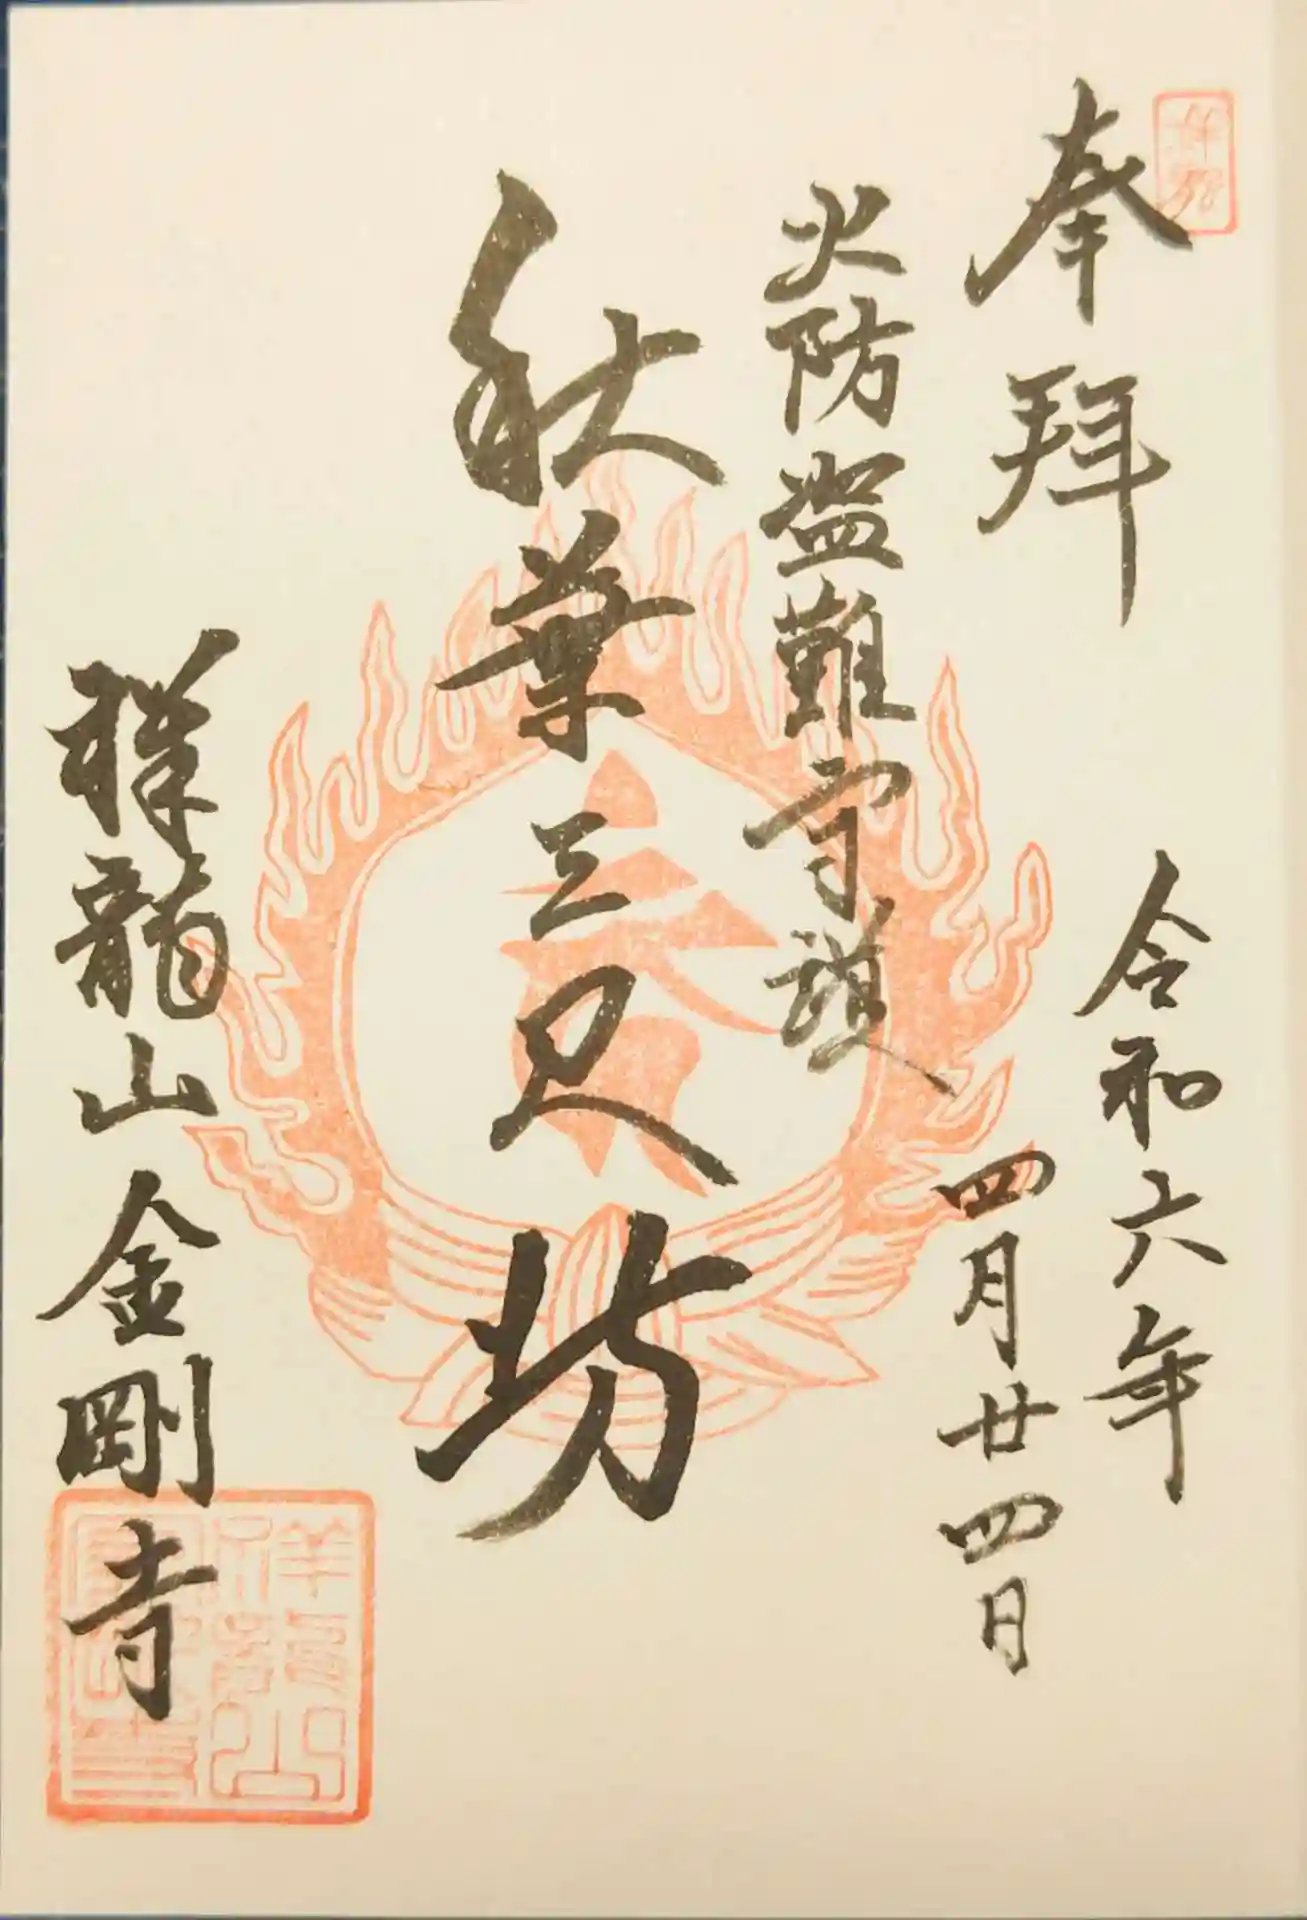 奉拜
令和六年
四月廿四日
火防盗難守護
秋葉三尺坊
祥龍山金剛寺
祥龍山
金剛寺